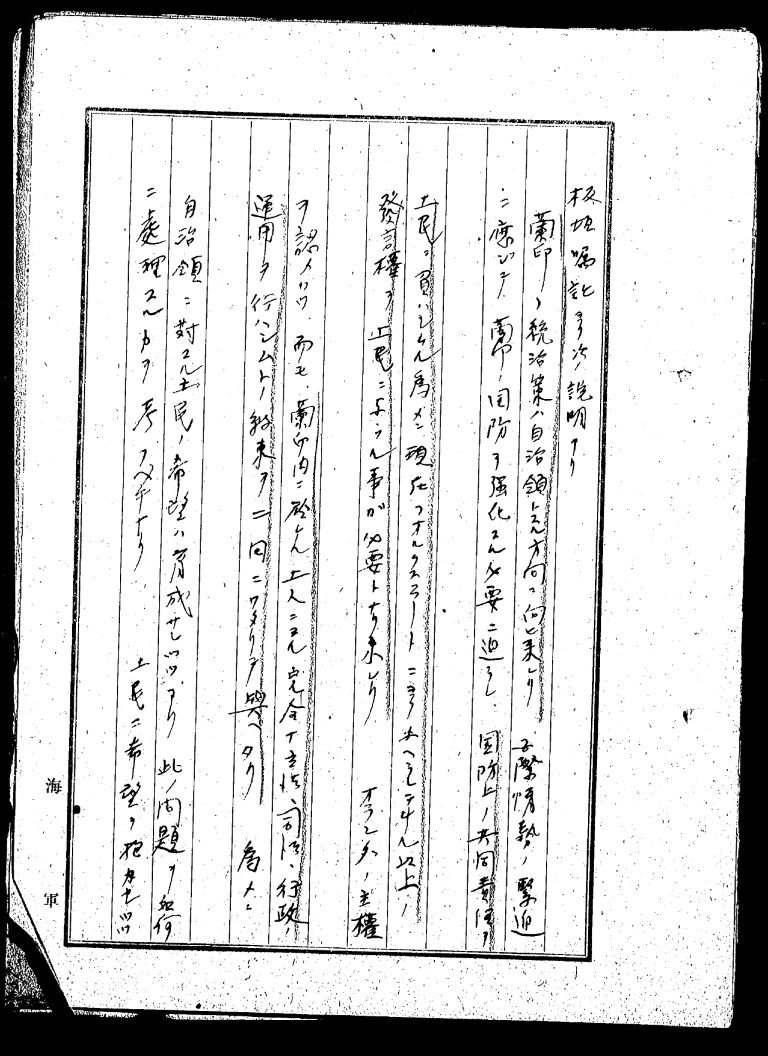 板垣嘱託ヨリ次ノ説明アリ
蘭印ノ統治策ハ自治領トスル方向ニ向ヒ来レリ 国際情勢ノ緊迫
ニ応ジテ、蘭印ノ国防ヲ強化スル必要ニ迫ラレ 国防上ノ共同責任ヲ
土民ニ負ハシムル為メニ現在フオルクスラートニヨリ与ヘラレ居ル以上ノ
発言権ヲ土民ニ与フル事ガ必要トナリ来レリ オランダノ主権
ヲ認メツツ、而モ、蘭印内ニ於ケル土人ニヨル完全ナ立法、司法、行政ノ
運用ヲ行ハシムトノ約束ヲ二回ニワタリテ与ヘタリ 為メニ
自治領ニ対スル土民ノ希望ハ育成サレツツアリ 此ノ問題ヲ如何
ニ処理スルカヲ考フベキナリ 土民ニ希望ヲ抱カセツツ
海軍